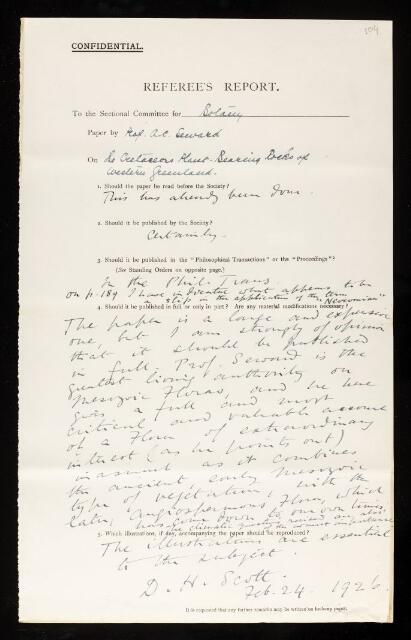 104
CONFIDENTIAL.
REFEREE'S REPORT.
To the Sectional Committee for Botany
Paper by Prof. A.C. Seward
On The Cretaceous Plant-Bearing Rocks of
Western Greenland.
1. Should the paper be read before the Society?
This has already been done.
2. Should it be published by the Society?
Certainly.
3. Should it be published in the "Philosophical Transactions" or the "Proceedings"?
(See Standing Orders on opposite page.)
In the Phil. Trans.
On p. 189 I have indicated what appears to be
a slip in the application of the term
4. Should it be published in full or only in part? Are any material modifications necessary?
The paper is a large and expensive
one, but I am strongly of opinion
that it should be published
in full. Prof. Seward is the
greatest living authority on
Mesozoic Floras, and he here
gives a full and most
critical and valuable account
of a Flora of extraordinary
interest (as he points out)
inasmuch as it combines
the ancient early Mesozoic
type of vegetation, with the
later, Angiospermous Flora, which
has gone down to our own times.
The climatic questions raised are also
of the utmost importance
5. Which illustrations, if any, accompanying the paper should be reproduced?
The illustrations are essential
to the subject.
D. H. Scott.
Feb. 24. 1926.
It is requested that any further remarks may be written on back page.